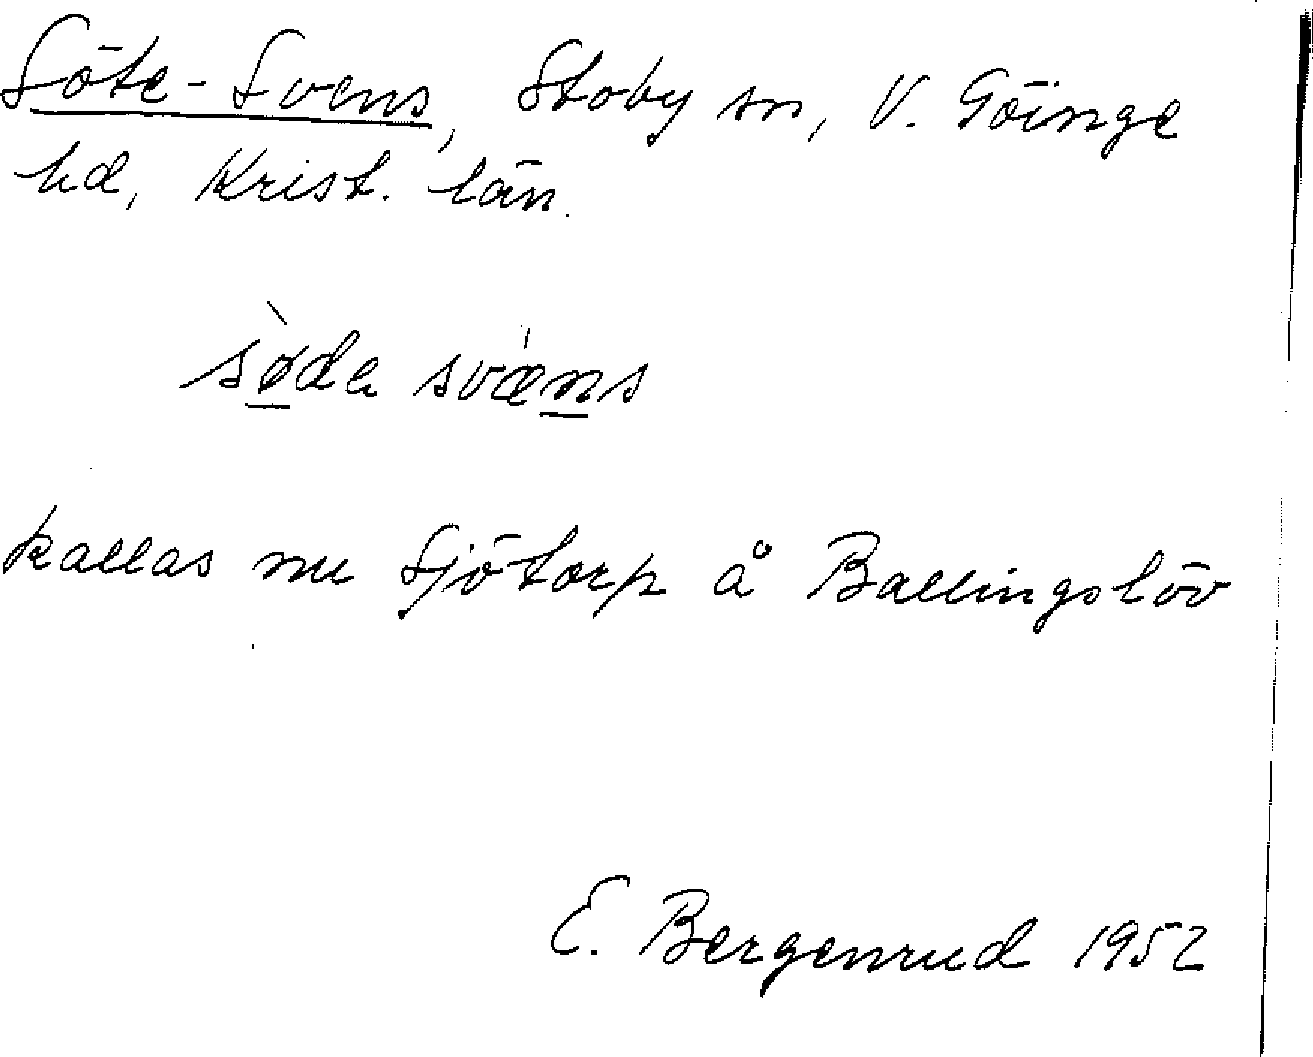 Söte-Svens, Stoby sn, V. Göinge
hd, Krist. län.
sø̀da svǽns
kallas nu Sjötorp å Ballingslöv
E. Bergenrud 1952